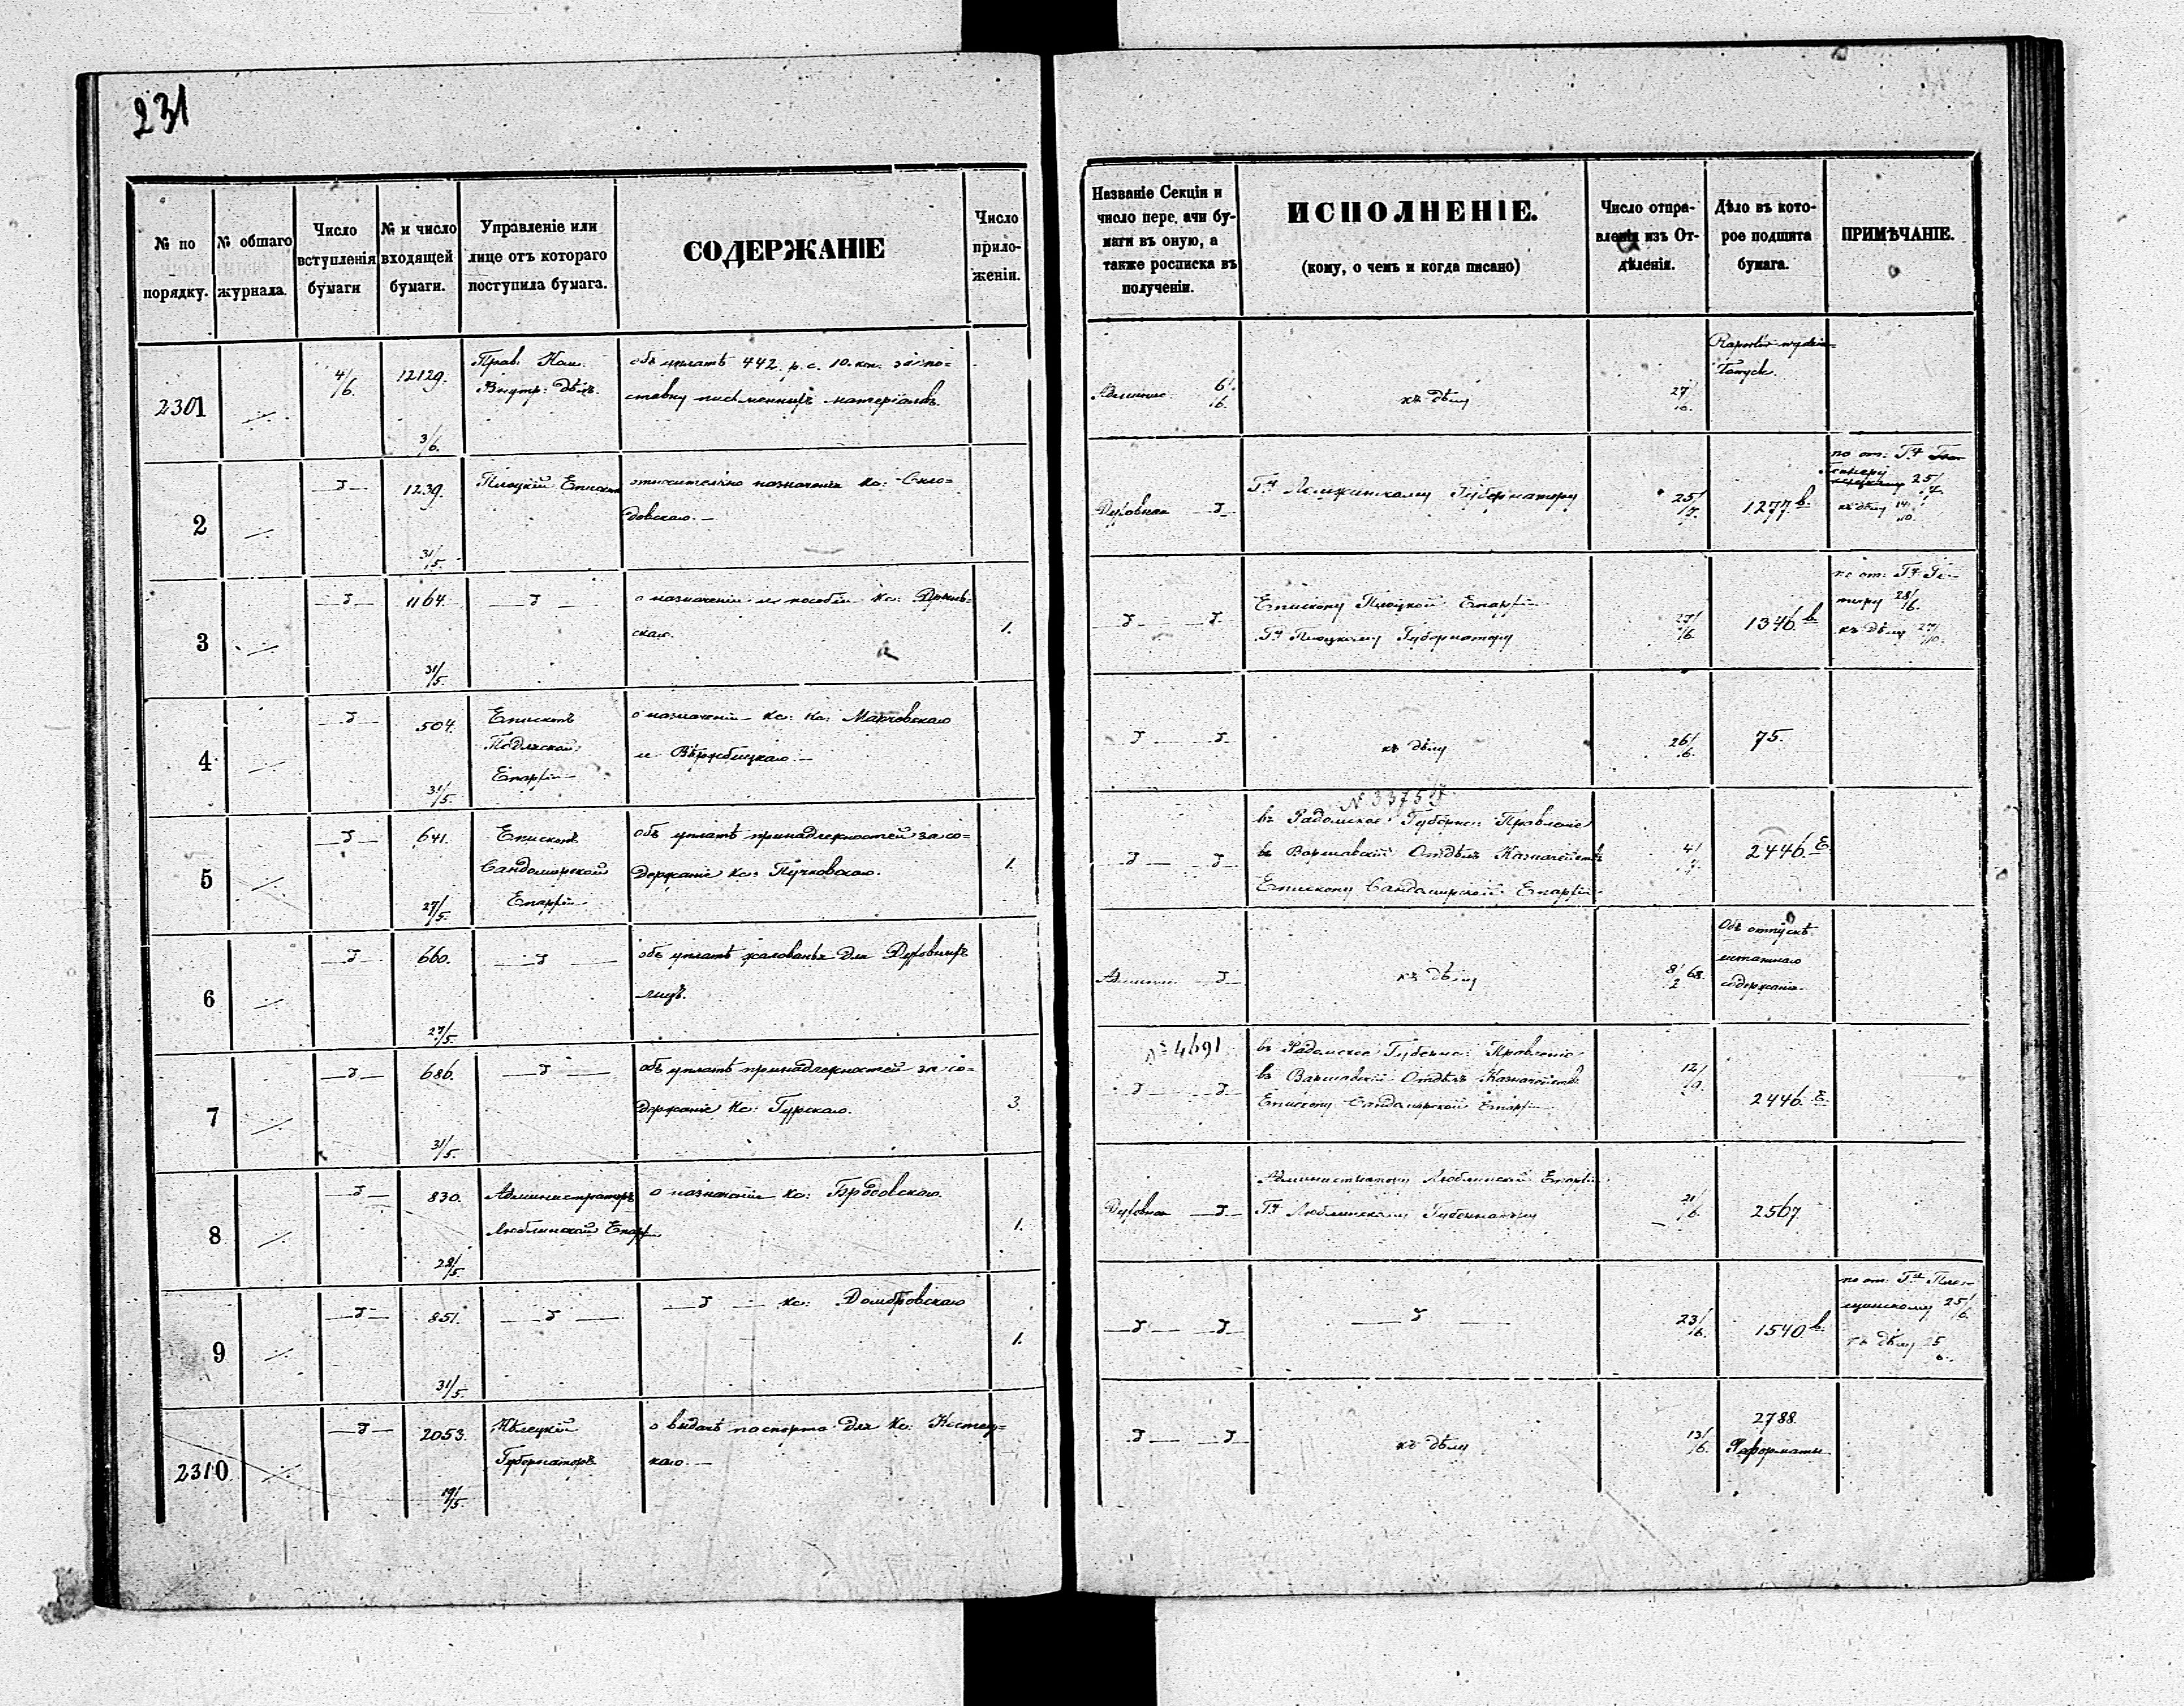 231
№ по порядку.
№ общаго журнала.
Число вступленія бумаги
№ и число входящей бумаги.
Управленіе или лице отъ котораго поступила бумага.
СОДЕРЖАНІЕ
Число прило-женіи.
Названіе Секціи и число пере. ачи бу-маги въ оную, а также росписка въ полученіи.
ИСПОЛНЕНІЕ.
(кому, о чемъ и когда писано)
Число отпра-вленія изъ От-дѣленія.
Дѣло въ кото-рое подшита бумага.
ПРИМѢЧАНІЕ.
2301
4/6.
12129.
3/6.
Прав. Ком.
Внутр: дѣлъ.
объ уплатѣ 442. р. с. 10. коп. за по-
ставку письменныхъ матеріаловъ.
6/6.
къ дѣлу
27/10.
2
1239.
31/5.
Плоцкій Епископъ
относительно назначенія Кс: Скло-
довскаго.
Духовная
Гну Ломжинскому Губернатору
25/7.
1277. b.
по от: Гну
25/7
къ дѣлу 14/10.
3
1164.
31/5.
о назначеніи и пособіи Кс:
скаго.
1.
Епископу Плоцкой Епархіи
Гну Плоцкому Губернатору
27/6.
1346. b.
по от: Гну
28/6.
къ дѣлу 27/10.
4
504.
31/5.
Епископъ
Подляской
Епархіи
о назначеніи Кс: Кс: Марховскаго
и Вѣржбицкаго.
къ дѣлу
26/6.
75.
5
641.
27/5.
Епископъ
Сандомирской
Епархіи
объ уплатѣ принадлежностей за со-
держаніе Кс: Пучковскаго.
1.
въ Радомское Губерн: Правленіе
въ Варшавскій Отдѣлъ Казначейства
Епископу Сандомирской Епархіи
4/7.
2446. E.
6
660.
27/5.
объ уплатѣ жалованья для Духовныхъ
лицъ.
къ дѣлу
8/2 68.
Объ отпускѣ
штатнаго
содержанія.
7
686.
31/5.
объ уплатѣ принадлежностей за со-
держаніе Кс: Гурскаго.
3.
№ 4691
въ Радомское Губерн: Правленіе
въ Варшавскій Отдѣлъ Казначейства
Епископу Сандомирской Епархіи
12/9.
2446. E.
8
830.
28/5.
Администраторъ
Люблинской Епарх
о назначеніи Кс: Бродовскаго.
1.
Духовная
Администратору Люблинской Епархіи
Гну Люблинскому Губернатору
21/6.
2567.
9
851.
31/5.
Кс: Домбровскаго
1.
23/6.
1540. b.
по от: Гну
25/6.
къ дѣлу 25
2310
2053.
19/5.
Кѣлецкій
Губернаторъ
о выдачѣ паспорта для Кс: Костец-
каго.
къ дѣлу
13/6.
2788.
Реформаты